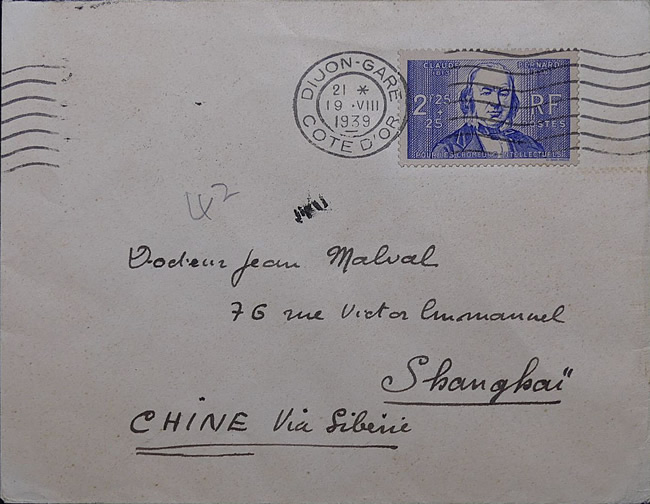 DIJON-GARE
21 *
19 · VIII
1939
COTE D'OR
CLAUDE BERNARD
2F25
+
25
RF
POSTES
POUR LES CHOMEURS INTELLECTUELS
42
Docteur Jean Malval
76 rue Victor Emmanuel
Shanghaï
CHINE Via Sibérie